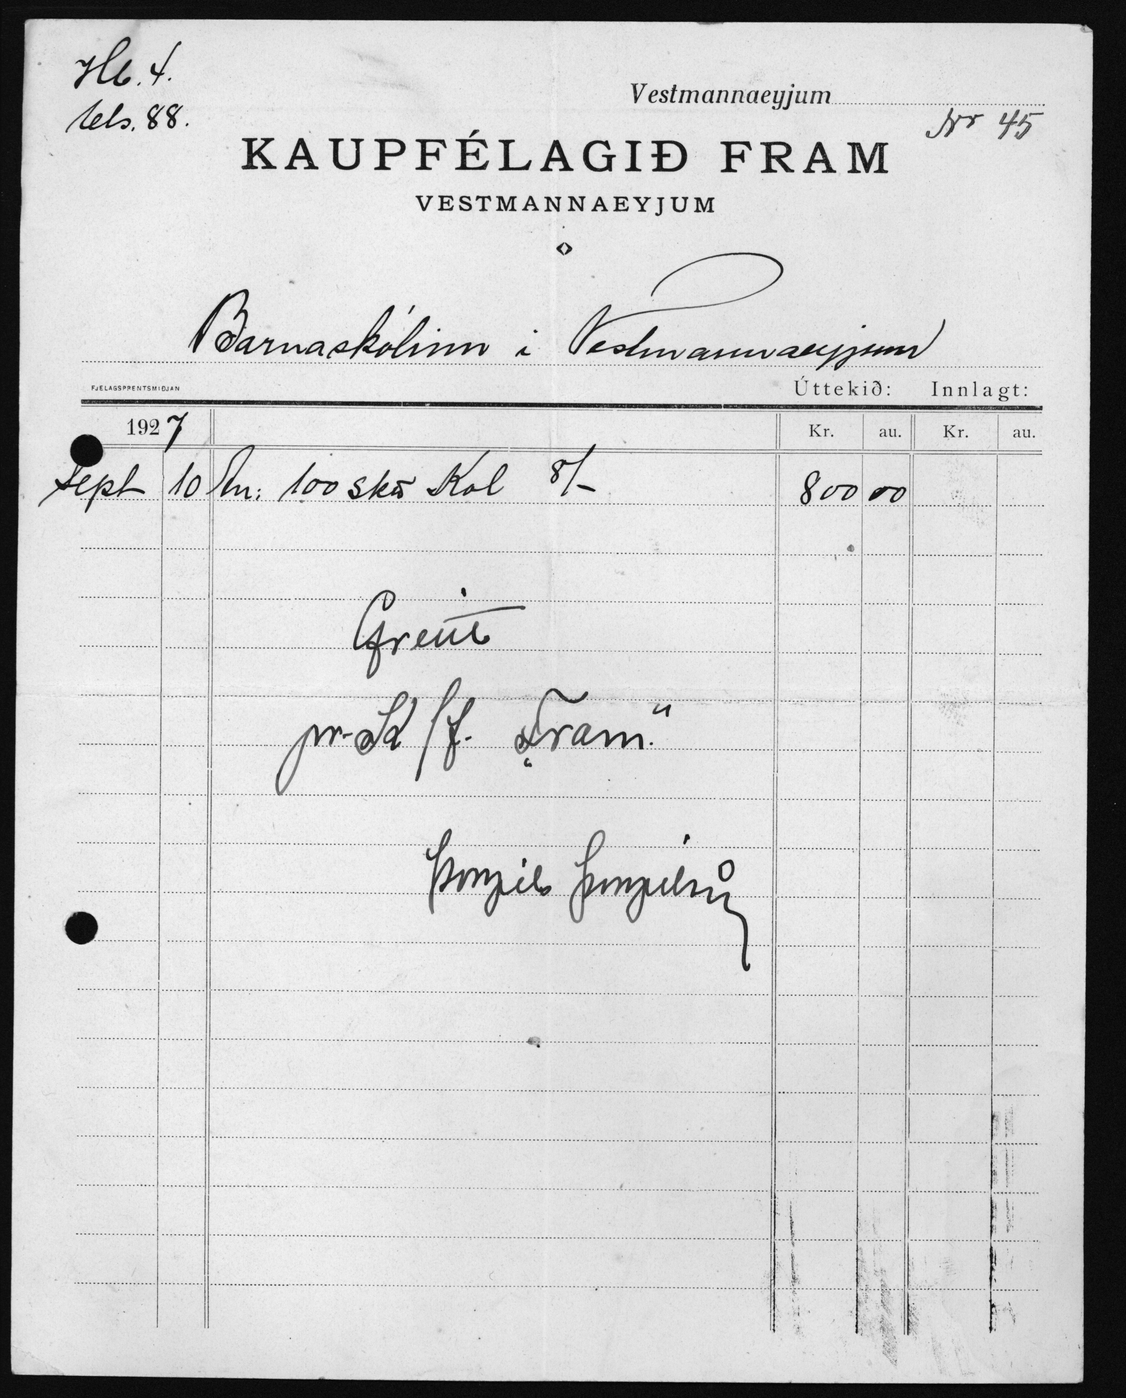 Hb. 4.
bls. 88.
Vestmannaeyjum
Nr 45
KAUPFÉLAGIÐ FRAM
VESTMANNAEYJUM
Barnaskólinn i Vestmannaeyjum
FJELAGSPRENTSMIÐJAN
Úttekið: Innlagt:
1927 Kr. au. Kr. au.
Sept 10 100 Kol 8/- 800 00
Greitt
pr. K/f. „Fram"